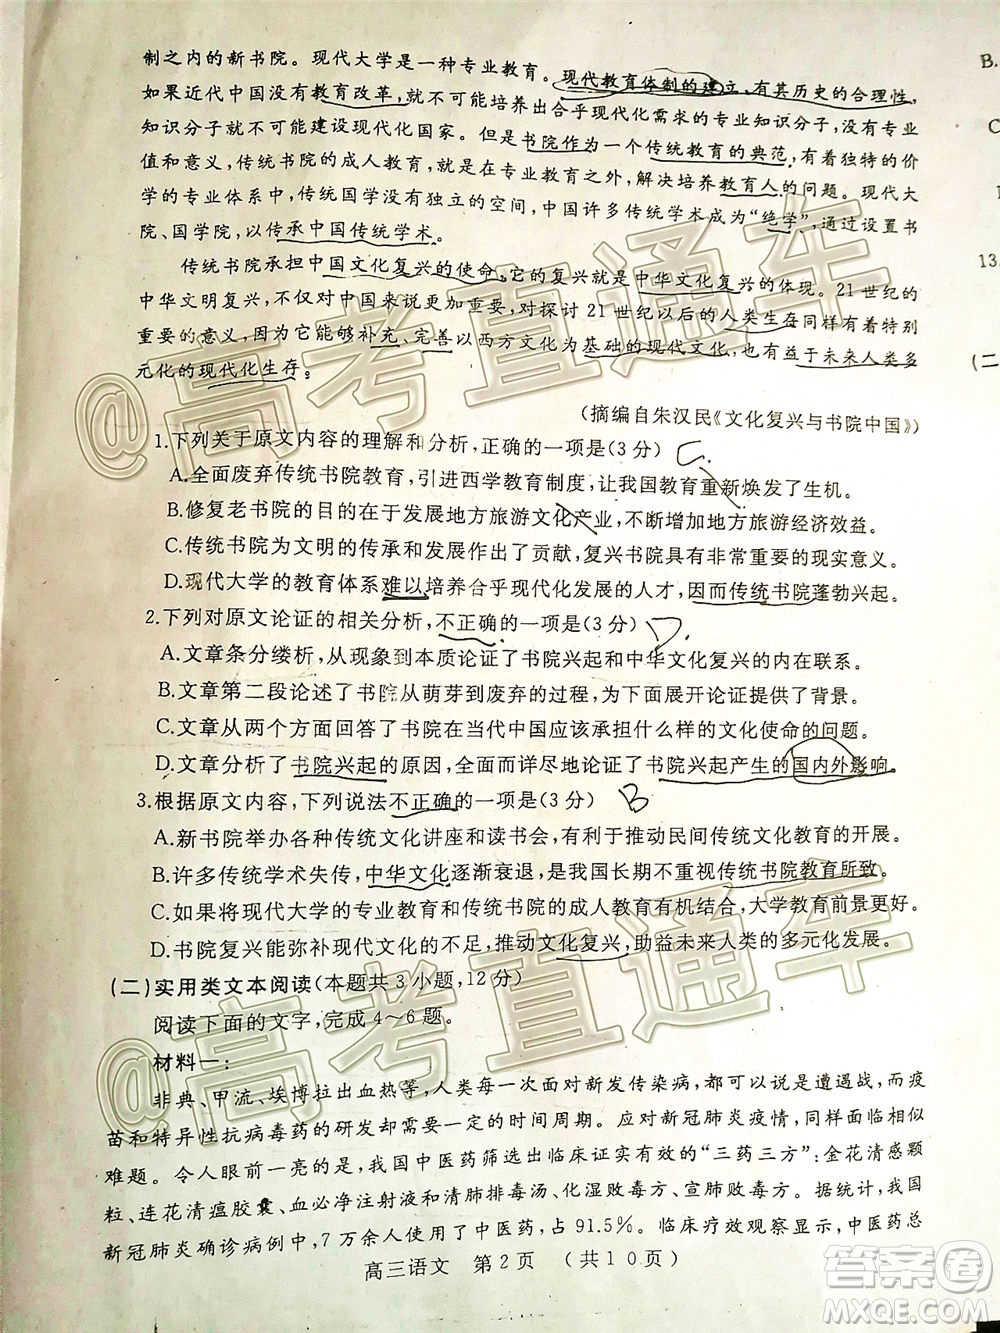 制之内的新书院。现代大学是一种专业教育。现代教育体制的建立,有其历史的合理性,
如果近代中国没有教育改革,就不可能培养出合乎现代化需求的专业知识分子,没有专业
知识分子就不可能建设现代化国家。但是书院作为一个传统教育的典范,有着独特的价
值和意义,传统书院的成人教育,就是在专业教育之外,解决培养教育人的问题。现代大
学的专业体系中,传统国学没有独立的空间,中国许多传统学术成为“绝学”,通过设置书
院、国学院,以传承中国传统学术。
传统书院承担中国文化复兴的使命,它的复兴就是中华文化复兴的体现。21世纪的
中华文明复兴,不仅对中国来说更加重要,对探讨21世纪以后的人类生存同样有着特别
重要的意义,因为它能够补充、完善以西方文化为基础的现代文化,也有益于未来人类多
元化的现代化生存。
(摘编自朱汉民《文化复兴与书院中国》)
1.下列关于原文内容的理解和分析,正确的一项是(3分) C
A.全面废弃传统书院教育,引进西学教育制度,让我国教育重新焕发了生机。
B.修复老书院的目的在于发展地方旅游文化产业,不断增加地方旅游经济效益。
C.传统书院为文明的传承和发展作出了贡献,复兴书院具有非常重要的现实意义。
D.现代大学的教育体系难以培养合乎现代化发展的人才,因而传统书院蓬勃兴起。
2.下列对原文论证的相关分析,不正确的一项是(3分) D.
A.文章条分缕析,从现象到本质论证了书院兴起和中华文化复兴的内在联系。
B.文章第二段论述了书院从萌芽到废弃的过程,为下面展开论证提供了背景。
C.文章从两个方面回答了书院在当代中国应该承担什么样的文化使命的问题。
D.文章分析了书院兴起的原因,全面而详尽地论证了书院兴起产生的国内外影响。
3.根据原文内容,下列说法不正确的一项是(3分) B
A.新书院举办各种传统文化讲座和读书会,有利于推动民间传统文化教育的开展。
B.许多传统学术失传,中华文化逐渐衰退,是我国长期不重视传统书院教育所致。
C.如果将现代大学的专业教育和传统书院的成人教育有机结合,大学教育前景更好。
D.书院复兴能弥补现代文化的不足,推动文化复兴,助益未来人类的多元化发展。
(二)实用类文本阅读(本题共3小题,12分)
阅读下面的文字,完成4~6题。
材料一:
非典、甲流、埃博拉出血热等,人类每一次面对新发传染病,都可以说是遭遇战,而疫
苗和特异性抗病毒药的研发却需要一定的时间周期。应对新冠肺炎疫情,同样面临相似
难题。令人眼前一亮的是,我国中医药筛选出临床证实有效的“三药三方”:金花清感颗
粒、连花清瘟胶囊、血必净注射液和清肺排毒汤、化湿败毒方、宣肺败毒方。据统计,我国
新冠肺炎确诊病例中,7万余人使用了中医药,占91.5%。临床疗效观察显示,中医药总
高三语文 第2页 (共10页)
B.
C
13.
(二
@高考直通车
@高考直通车
答案卷
MXQE.COM